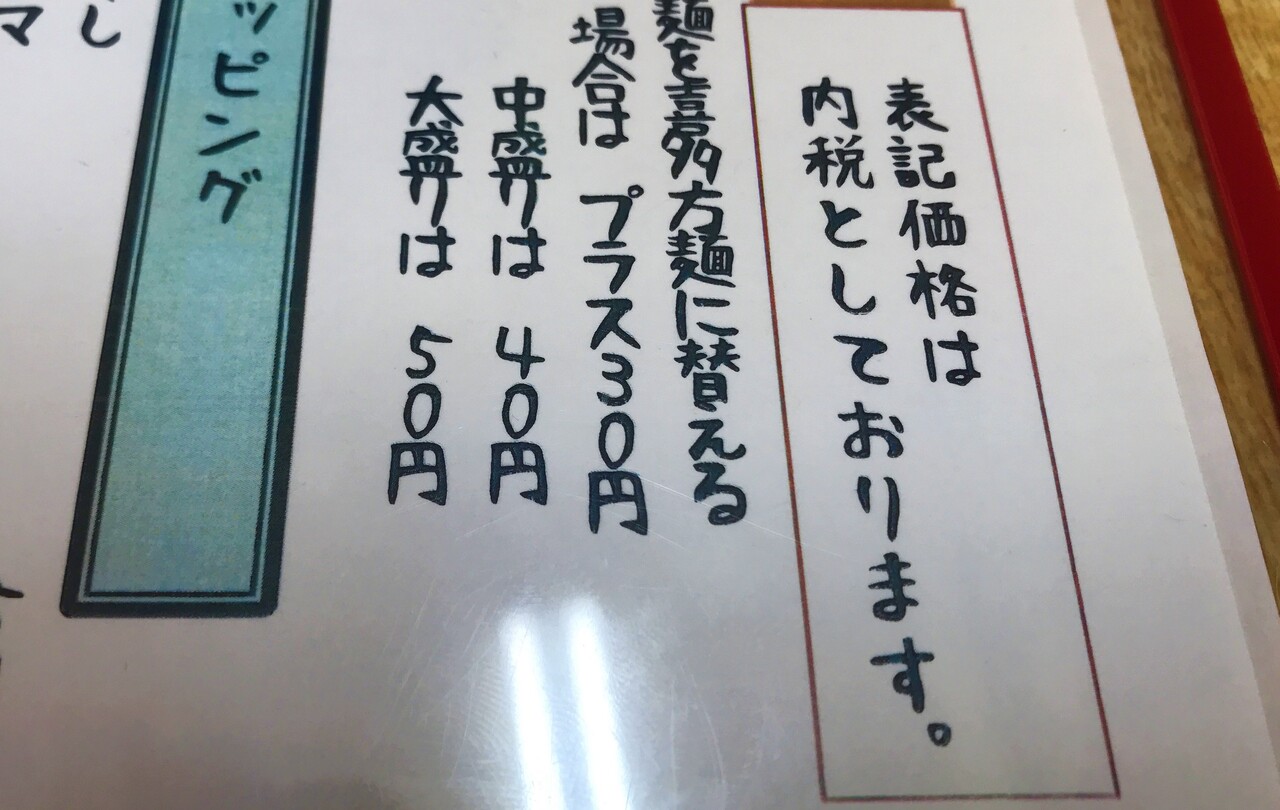 表記価格は
内税としております。
麺を喜多方麺に替える
場合は プラス30円
中盛りは 40円
大盛りは 50円
ッピング
し
マ